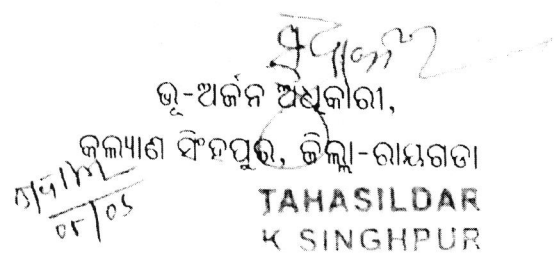 ଭୂ-ଅର୍ଜନ ଅଧିକାରୀ,
କଲ୍ୟାଣ ସିଂହପୁର, ଜିଲ୍ଲା-ରାୟଗଡା
TAHASILDAR
K SINGHPUR